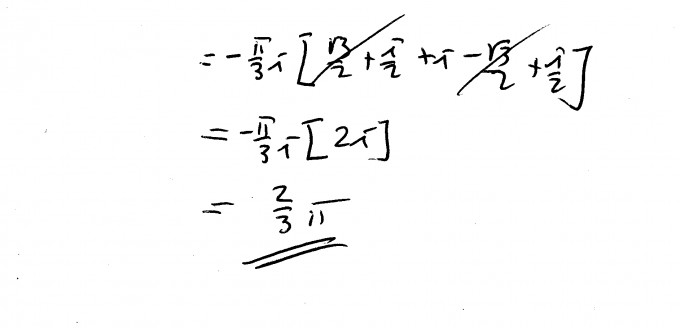 = -π/3 i [√3/2 + i/2 + i - √3/2 + i/2]
= -π/3 i [2i]
= 2/3 π